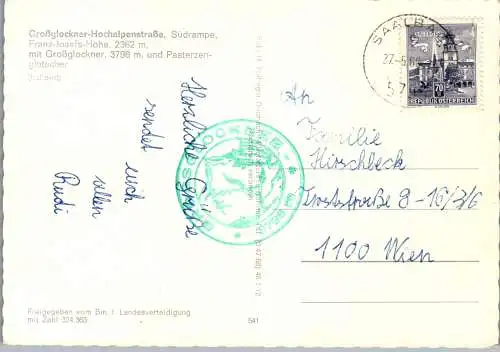 Großglockner-Hochalpenstraße, Südrampe,
Franz-Josefs-Höhe, 2362 m,
mit Großglockner, 3798 m, und Pasterzen-
gletscher
(Luftbild)
Herzliche Grüße
sendet euch
allen
Rudi
Freigegeben vom Bm. f. Landesverteidigung
mit Zahl 324.363
541
SAALBA
27.-5.6
57
70
REPUBLIK ÖSTERREICH
An
Familie
Hirschbeck
8-16/3/6
1100 Wien